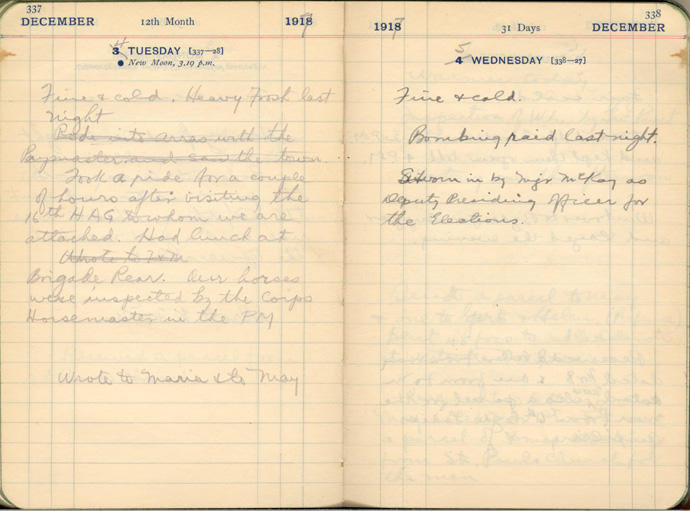 337
DECEMBER 12th Month 1918 7
3 4 TUESDAY [337—28]
● New Moon, 3.19 p.m.
Fine & cold. Heavy Frost last
night
Rode into Arras with the
Paymaster and saw the town.
Took a ride for a couple
of hours after visiting the
16th HAG to whom we are
attached. Had lunch at
Wrote to
Brigade Rear. Our horses
were inspected by the Corps
Horsemaster in the PM
Wrote to Maria & to May
338
1918 7 31 Days DECEMBER
5
4 WEDNESDAY [338—27]
Fine & cold.
Bombing raid last night.
Sworn in by Major McKay as
Deputy Presiding Officer for
the Elections.